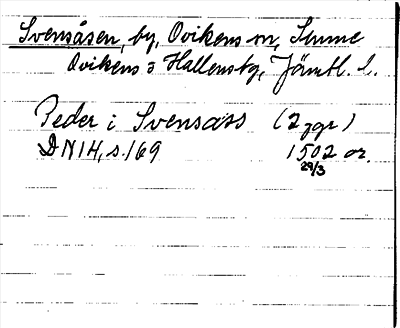 Svensåsen, by, Ovikens sn, Sunne
Ovikens o Hallens tg, Jämtl. L.
Peder i Svensaas (2 ggr)
DN 14, s. 169 1502 or.
29/3